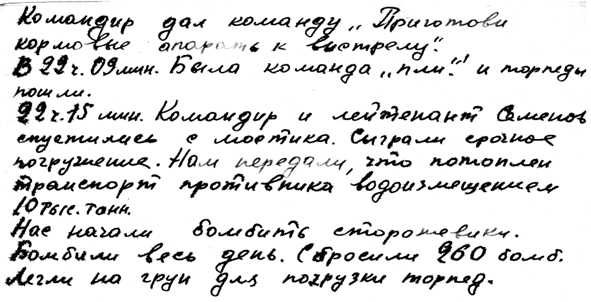 Командир дал команду „Приготови
кормовые апараты к выстрелу".
В 22ч. 09мин. Была команда „пли"! и торпеды
пошли.
22ч.15 мин. Командир и лейтенант Семенов
спустились с мостика. Сыграли срочное
погружение. Нам передали, что потоплен
транспорт противника водоизмещением
10тыс.тонн.
Нас начали бомбить сторожевики.
Бомбили весь день. Сбросили 260 бомб.
Легли на грун для погрузки торпед.